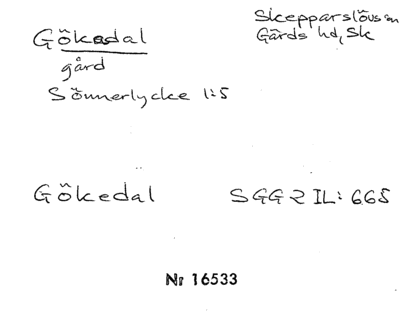 Gökedal
Skepparslövs sn
Gärds hd, Sk
gård
Sönnerlycke 1:5
Gökedal SGG 2 IL: 665
Nr 16533